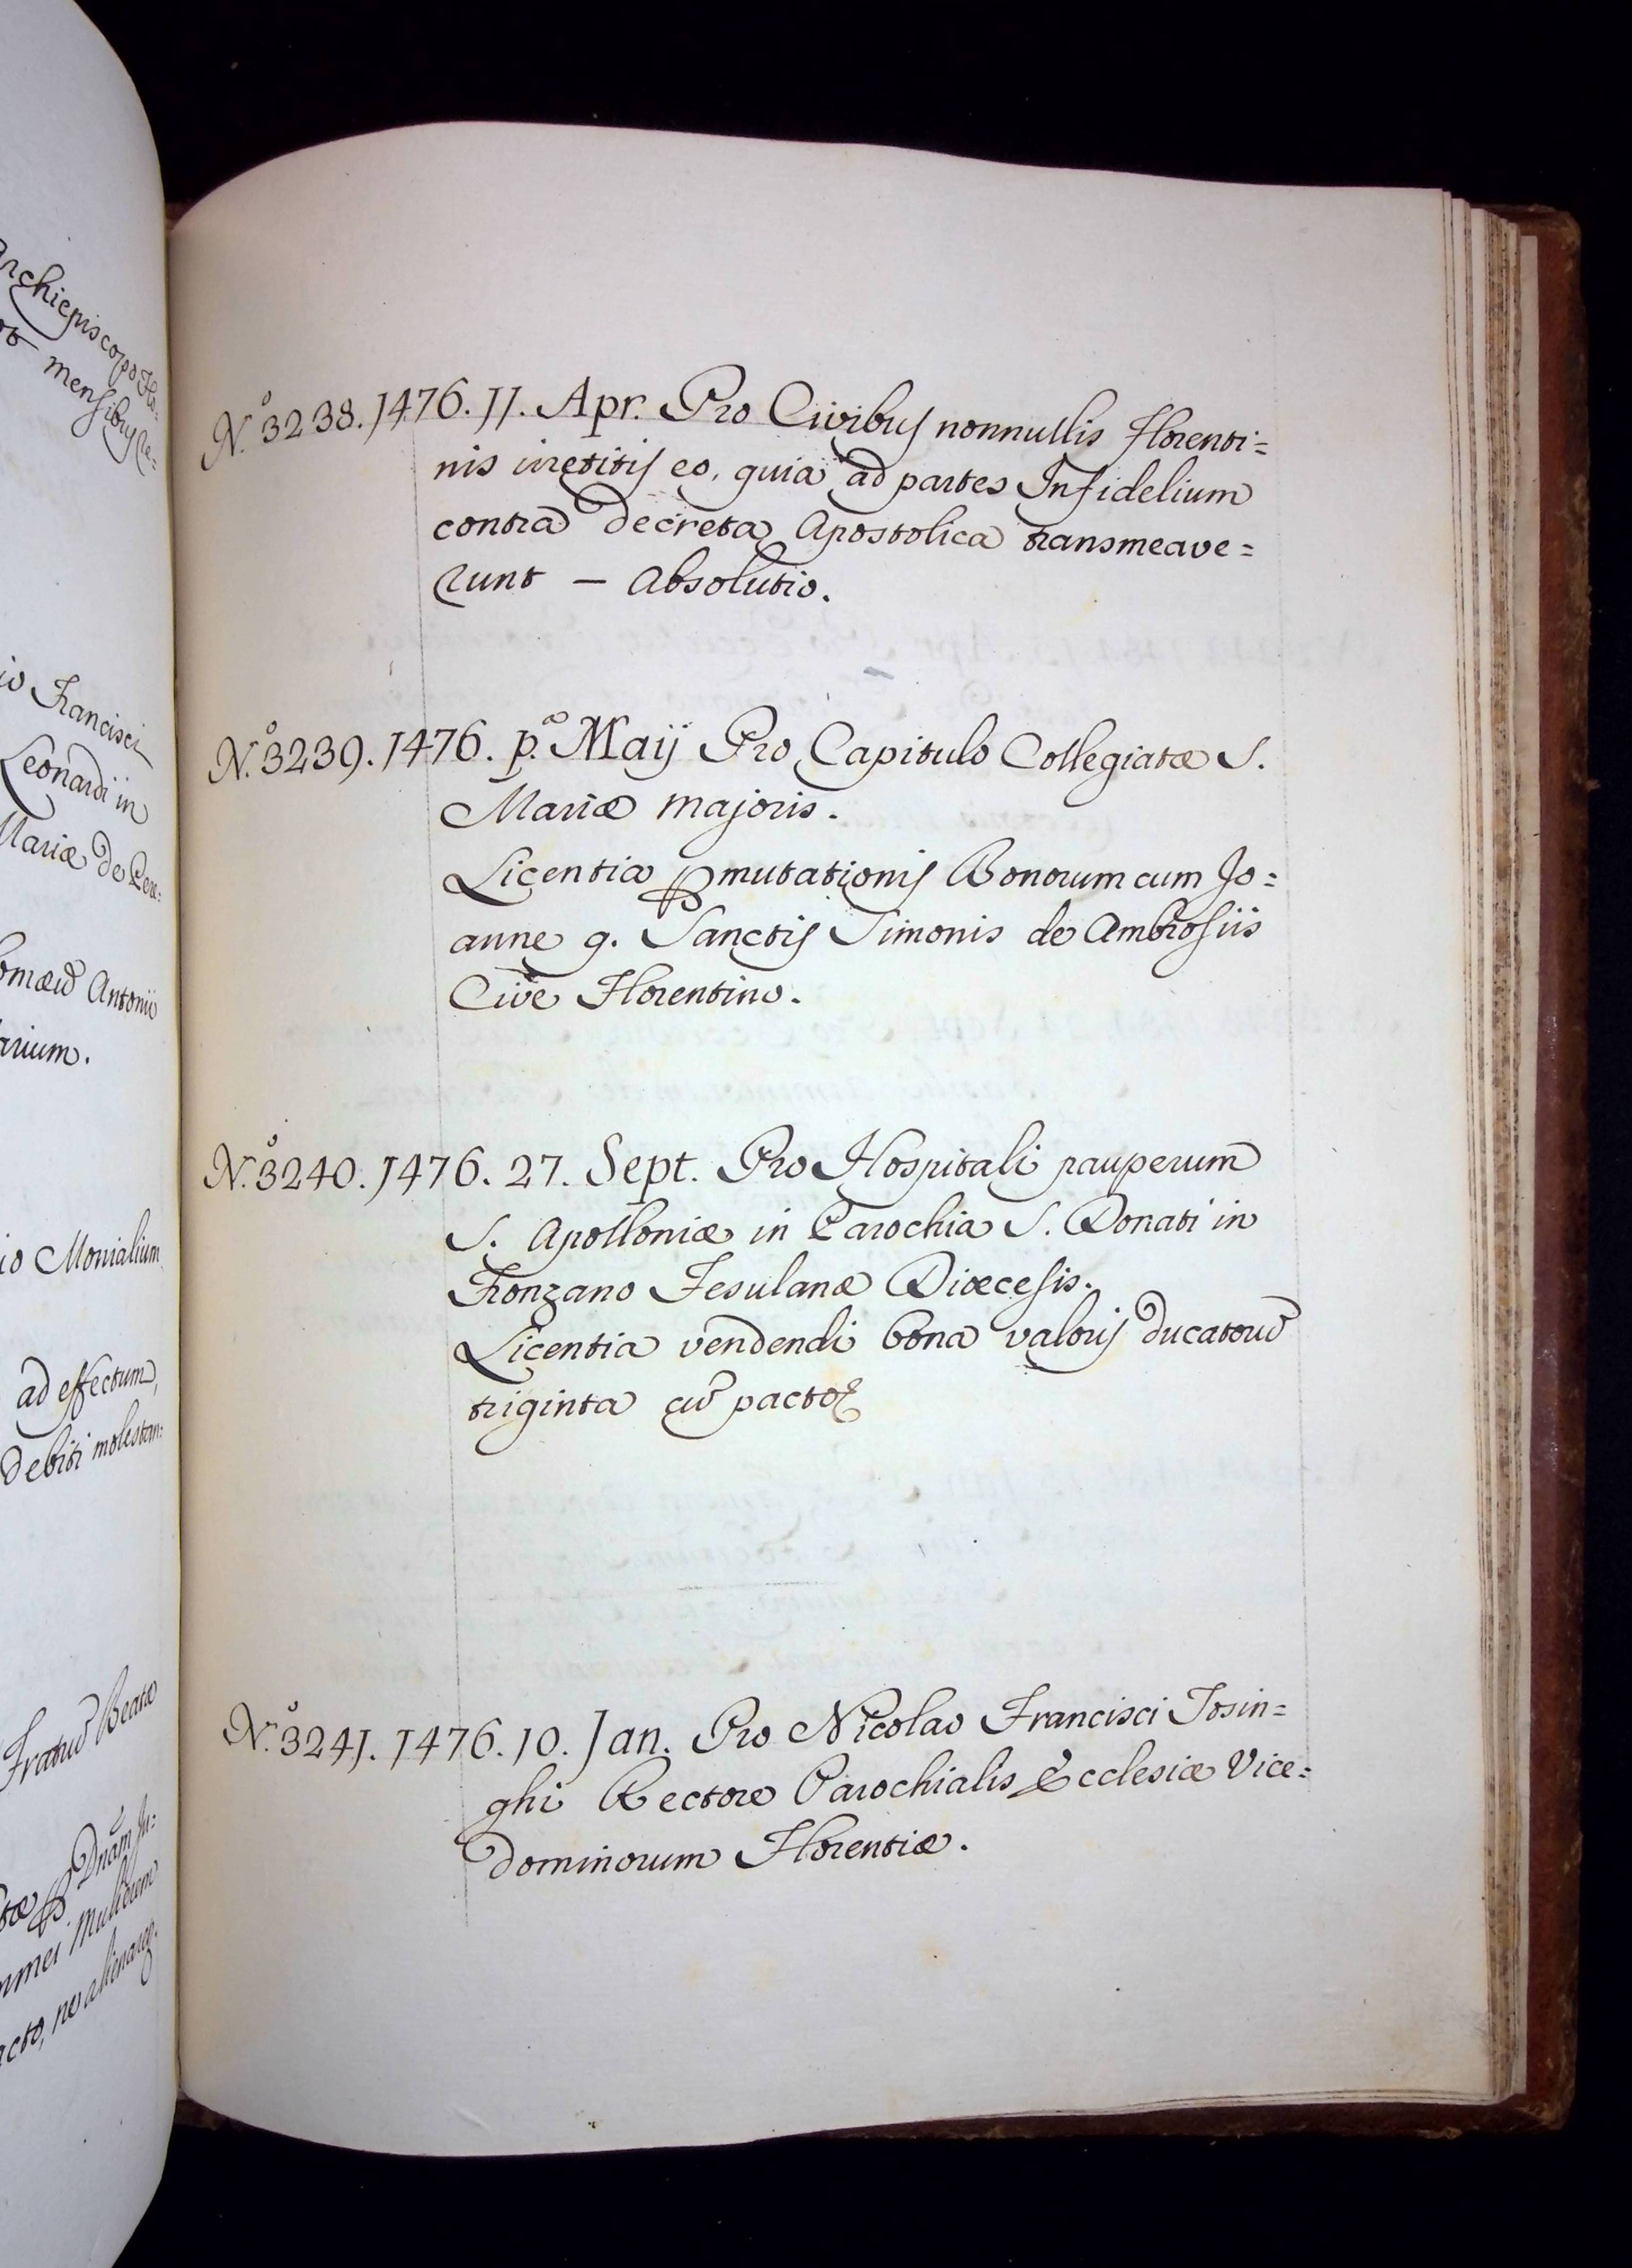 Archiepiscopo Flo:
mensibus
io Francisci
Leonardi in
Mariæ de
Antonii
arium.
io Monialium
ad effectum,
debiti molestan:
Fratrū Beatæ
Dnām
acto, ne
Nº. 3238. 1476. 11. Apr. Pro Civibus nonnullis Florenti=
nis iretitis eo, quia ad partes Infidelium
contra decreta Apostolica transmeave=
runt — Absolutio.
Nº. 3239. 1476. p.ª Maij Pro Capitulo Collegiatæ S.
Mariæ majoris.
Licentia ꝑmutationis Bonorum cum Jo=
anne q. Sanctis Simonis de Ambrosiis
Cive Florentino.
Nº. 3240. 1476. 27. Sept. Pro Hospitali pauperum
S. Apolloniæ in Parochia S. Donati in
Fronzano Fesulanæ Diœcesis.
Licentia vendendi bona valoris ducatorū
triginta cū pacto
Nº. 3241. 1476. 10. Jan. Pro Nicolao Francisci Tosin=
ghi Rectore Parochialis Ecclesiæ Vice=
dominorum Florentiæ.